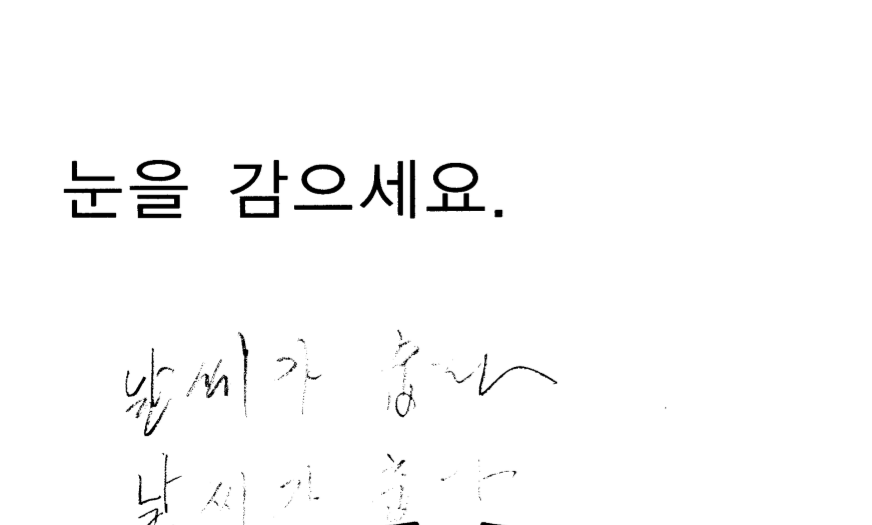 눈을 감으세요.
날씨가 춥다
날씨가 춥다